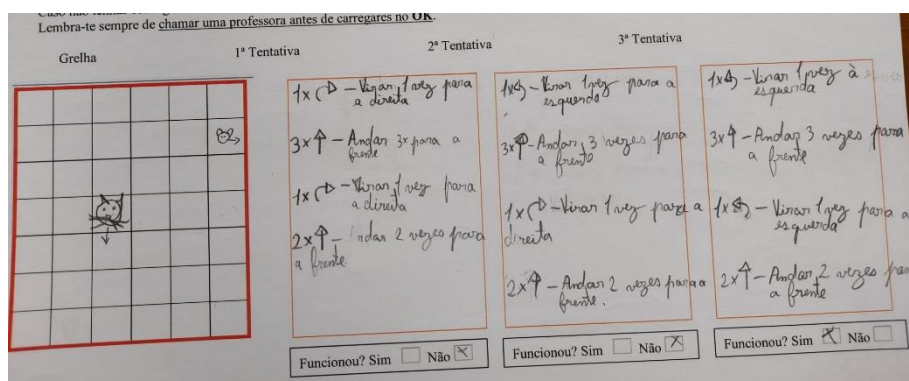 Lembra-te sempre de chamar uma professora antes de carregares no OK.
Grelha
1ª Tentativa
2ª Tentativa
3ª Tentativa
1x ↷ – Virar 1 vez para
a direita
3x ↑ – Andar 3x para a
frente
1x ↷ – Virar 1 vez para
a direita
2x ↑ – ndar 2 vezes para
a frente
Funcionou? Sim ☐ Não ☒
1x ↶ – Virar 1 vez para a
esquerda
3x ↑ – Andar 3 vezes para
a frente
1x ↷ – Virar 1 vez para a
direita
2x ↑ – Andar 2 vezes para a
frente.
Funcionou? Sim ☐ Não ☒
1x ↶ – Virar 1 vez à
esquerda
3x ↑ – Andar 3 vezes para
a frente
1x ↶ – Virar 1 vez para a
esquerda
2x ↑ – Andar 2 vezes par
a frente
Funcionou? Sim ☒ Não ☐